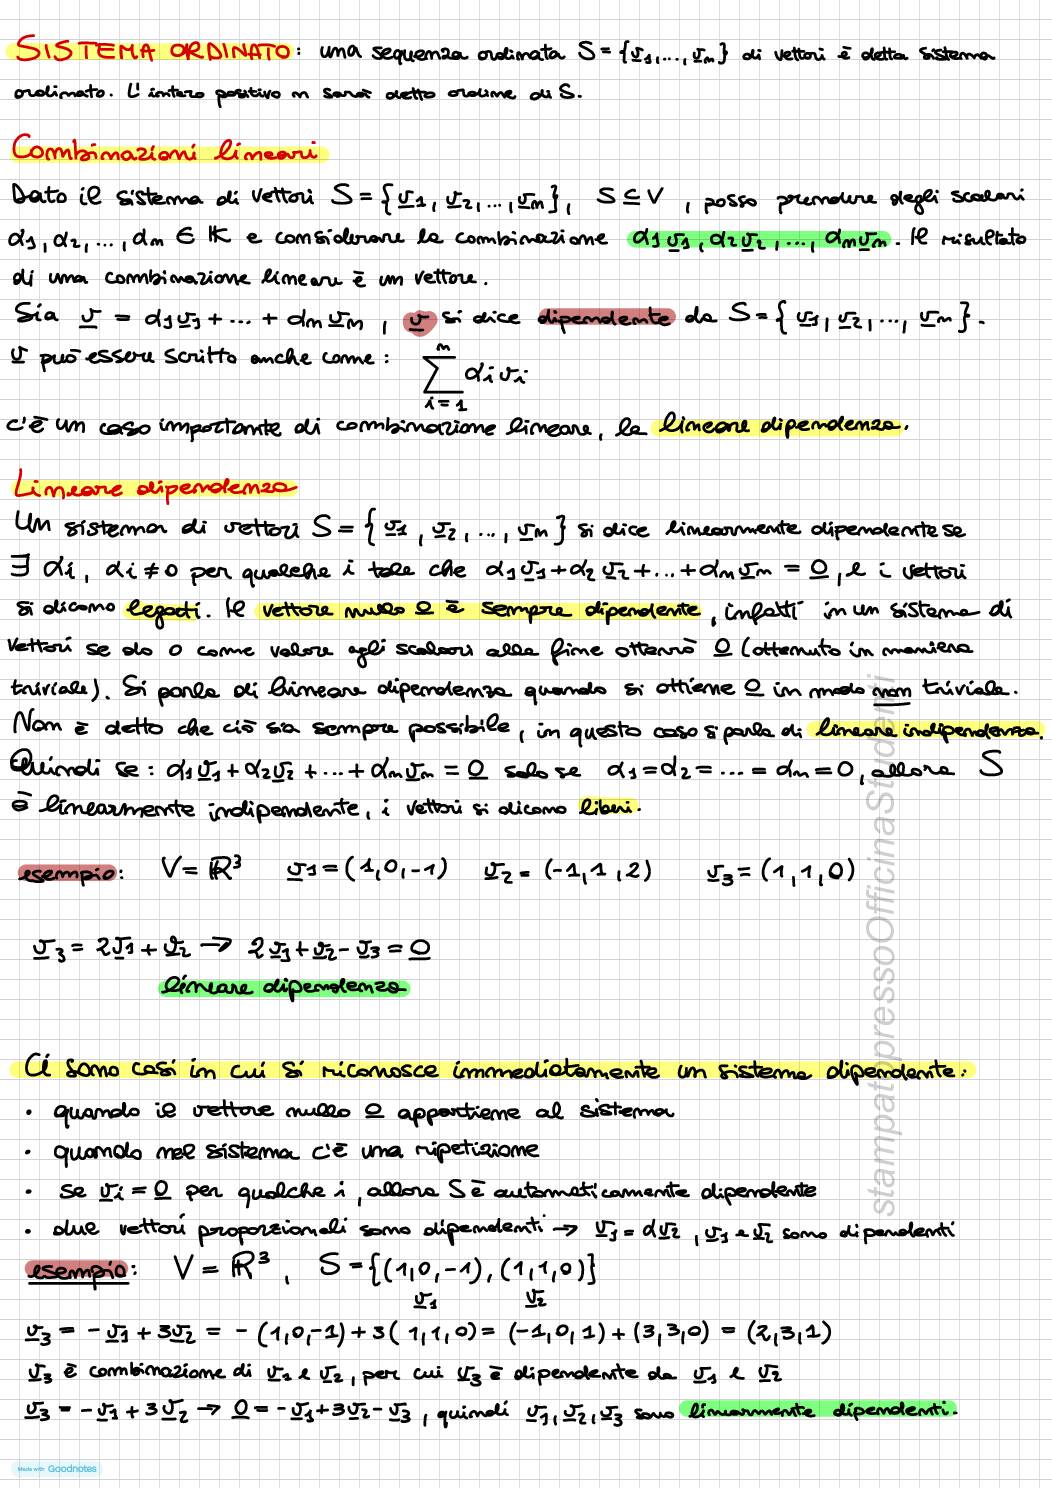 SISTEMA ORDINATO: una sequenza ordinata S = {v1,..., vn} di vettori è detta sistema
ordinato. L' intero positivo n sarà detto ordine di S.
Combinazioni lineari
Dato il sistema di vettori S = {v1, v2, ..., vn}, S ⊆ V , posso prendere degli scalari
α1, α2, ..., αn ∈ K e considerare la combinazione α1 v1, α2 v2, ..., αn vn. Il risultato
di una combinazione lineare è un vettore.
Sia v = α1 v1 + ... + αn vn , v si dice dipendente da S = { v1, v2, ..., vn }.
v può essere scritto anche come: n∑i=1 αi vi
c'è un caso importante di combinazione lineare, la lineare dipendenza.
Lineare dipendenza
Un sistema di vettori S = { v1 , v2 , ..., vn } si dice linearmente dipendente se
∃ αi, αi ≠ 0 per qualche i tale che α1 v1 + α2 v2 + ... + αn vn = 0, e i vettori
si dicono legati. Il vettore nullo 0 è sempre dipendente, infatti in un sistema di
vettori se do 0 come valore agli scalari alla fine otterrò 0 (ottenuto in maniera
triviale). Si parla di lineare dipendenza quando si ottiene 0 in modo non triviale.
Non è detto che ciò sia sempre possibile, in questo caso si parla di lineare indipendenza.
Quindi se: α1 v1 + α2 v2 + ... + αn vn = 0 solo se α1 = α2 = ... = αn = 0, allora S
è linearmente indipendente, i vettori si dicono liberi.
esempio: V = R³ v1 = (1,0,-1) v2 = (-1,1,2) v3 = (1,1,0)
v3 = 2v1 + v2 → 2v1 + v2 - v3 = 0
lineare dipendenza
Ci sono casi in cui si riconosce immediatamente un sistema dipendente:
• quando il vettore nullo 0 appartiene al sistema
• quando nel sistema c'è una ripetizione
• se vi = 0 per qualche i, allora S è automaticamente dipendente
• due vettori proporzionali sono dipendenti → v1 = αv2 , v1 e v2 sono dipendenti
esempio: V = R³, S = {(1,0,-1), (1,1,0)}
v1 v2
v3 = - v1 + 3v2 = - (1,0,-1) + 3( 1,1,0) = (-1,0,1) + (3,3,0) = (2,3,1)
v3 è combinazione di v1 e v2, per cui v3 è dipendente da v1 e v2
v3 = - v1 + 3 v2 → 0 = - v1 + 3v2 - v3 , quindi v1, v2, v3 sono linearmente dipendenti.
stampatopressoOfficinaStudenti
Made with Goodnotes